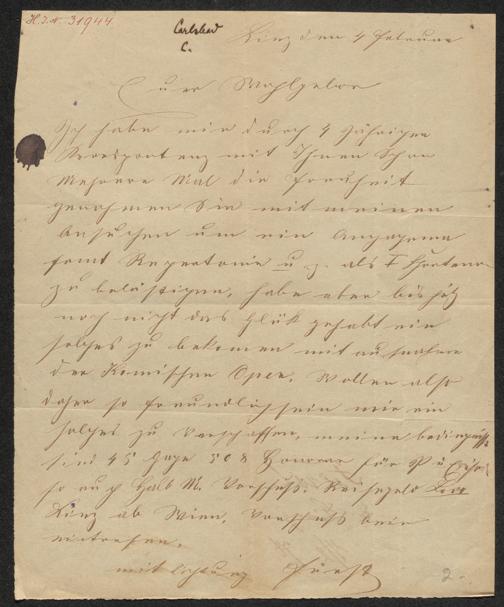 H.I.N. 31944.
Carlsbad
C.
Linz den 4 Februar
Euer Wohlgebor
Ich habe mir durch 4 Jährigen
Korespontenz mit Ihnen schon
Mehrere Mal die Freiheit
genohmen Sie mit meinen
Ansuchen um ein Angagemen
samt Repertoire u. z. als
zu belästigen, habe aber bis jetz
noch nicht das Glük gehabt ein
solches zu bekomen mit ausnahme
der Komischen Oper. Wollen also
daher so freundlich sein mir ein
solches zu Verschaffen, meine bedingniße
sind 45 Gage Honorar für
so auch halb M. Vorschuß. Reisegeld
Linz ab Wien, Vorschuß beim
eintrefen.
mit Achtung Fürst
2.